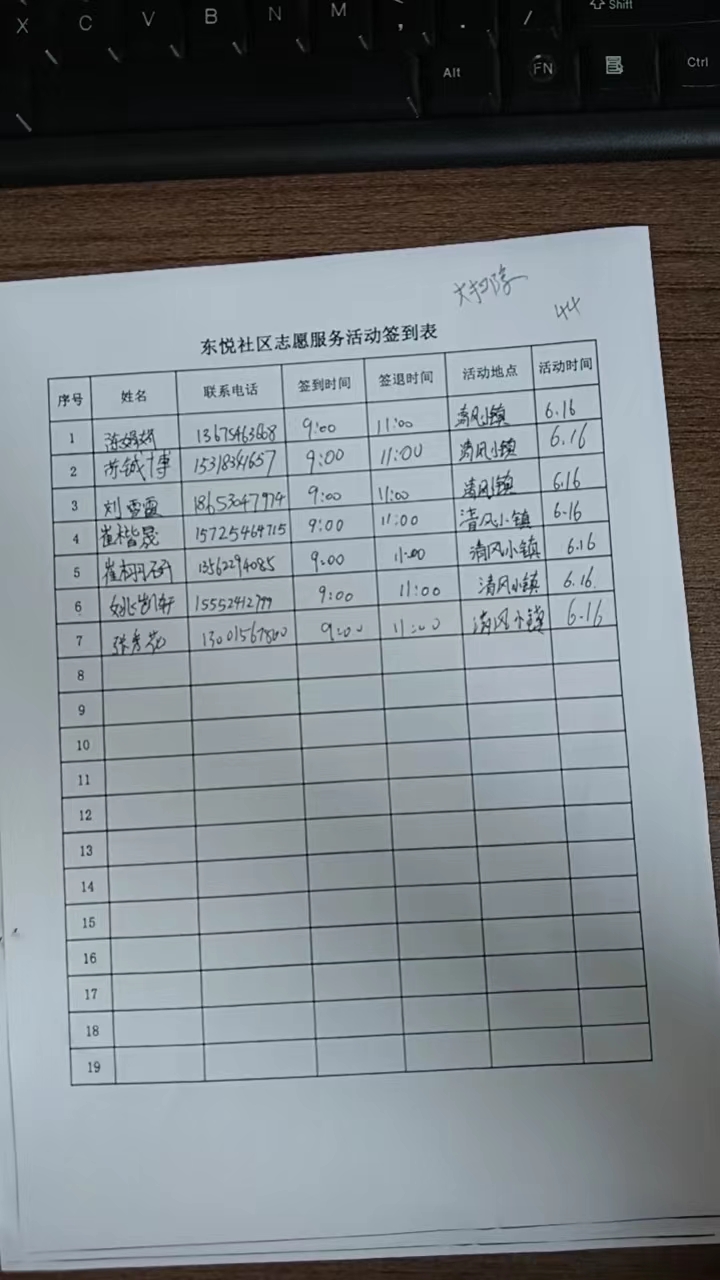 X C V B N M , . / Shift
Alt FN Ctrl
44
东悦社区志愿服务活动签到表
序号 姓名 联系电话 签到时间 签退时间 活动地点 活动时间
1 9:00 11:00 清风小镇 6.16
2 15318341657 9:00 11:00 清风小镇 6.16
3 刘雪霞 18653047974 9:00 11:00 清风小镇 6.16
4 崔楷晟 15725464715 9:00 11:00 清风小镇 6.16
5 13562294085 9:00 11:00 清风小镇 6.16
6 姚凯轩 15552412799 9:00 11:00 清风小镇 6.16
7 张秀花 9:00 11:00 清风小镇 6.16
8
9
10
11
12
13
14
15
16
17
18
19